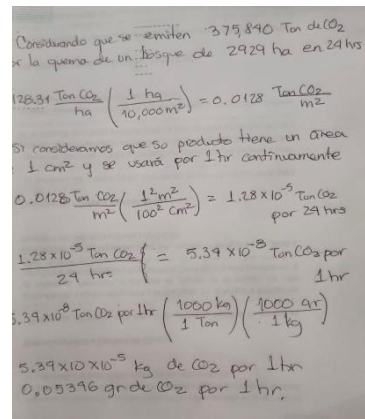 Considerando que se emiten 375,840 Ton de CO2
or la quema de un bosque de 2929 ha en 24 hrs
128.31 Ton CO2/ha (1 ha/10,000 m²) = 0.0128 Ton CO2/m²
Si consideramos que su producto tiene un área
1 cm² y se usará por 1 hr continuamente
0.0128 Ton CO2/m² (1² m²/100² cm²) = 1.28 x 10⁻⁵ Ton CO2
por 24 hrs
1.28 x 10⁻⁵ Ton CO2/24 hrs = 5.39 x 10⁻⁸ Ton CO2 por
1 hr
5.39 x 10⁻⁸ Ton CO2 por 1 hr (1000 kg/1 Ton) (1000 gr/1 kg)
5.39 x 10 x 10⁻⁵ kg de CO2 por 1 hr
0.05396 gr de CO2 por 1 hr.